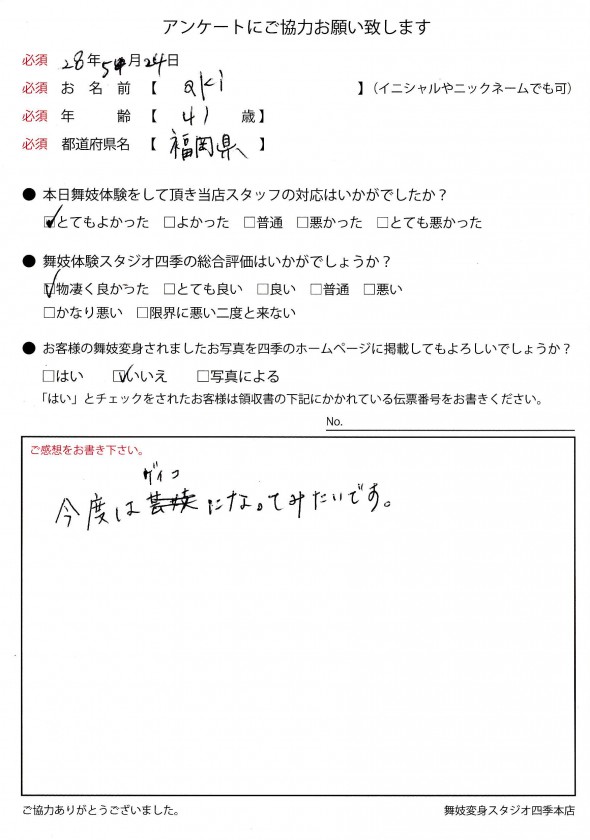 アンケートにご協力お願い致します
必須 28年5月24日
必須 お名前【 aki 】（イニシャルやニックネームでも可）
必須 年齢【 41 歳】
必須 都道府県名【 福岡県 】
● 本日舞妓体験をして頂き当店スタッフの対応はいかがでしたか？
☑とてもよかった □よかった □普通 □悪かった □とても悪かった
● 舞妓体験スタジオ四季の総合評価はいかがでしょうか？
☑物凄く良かった □とても良い □良い □普通 □悪い
□かなり悪い □限界に悪い二度と来ない
● お客様の舞妓変身されましたお写真を四季のホームページに掲載してもよろしいでしょうか？
□はい ☑いいえ □写真による
「はい」とチェックをされたお客様は領収書の下記にかかれている伝票番号をお書きください。
No.
ご感想をお書き下さい。
ゲイコ
今度は芸妓になってみたいです。
ご協力ありがとうございました。
舞妓変身スタジオ四季本店